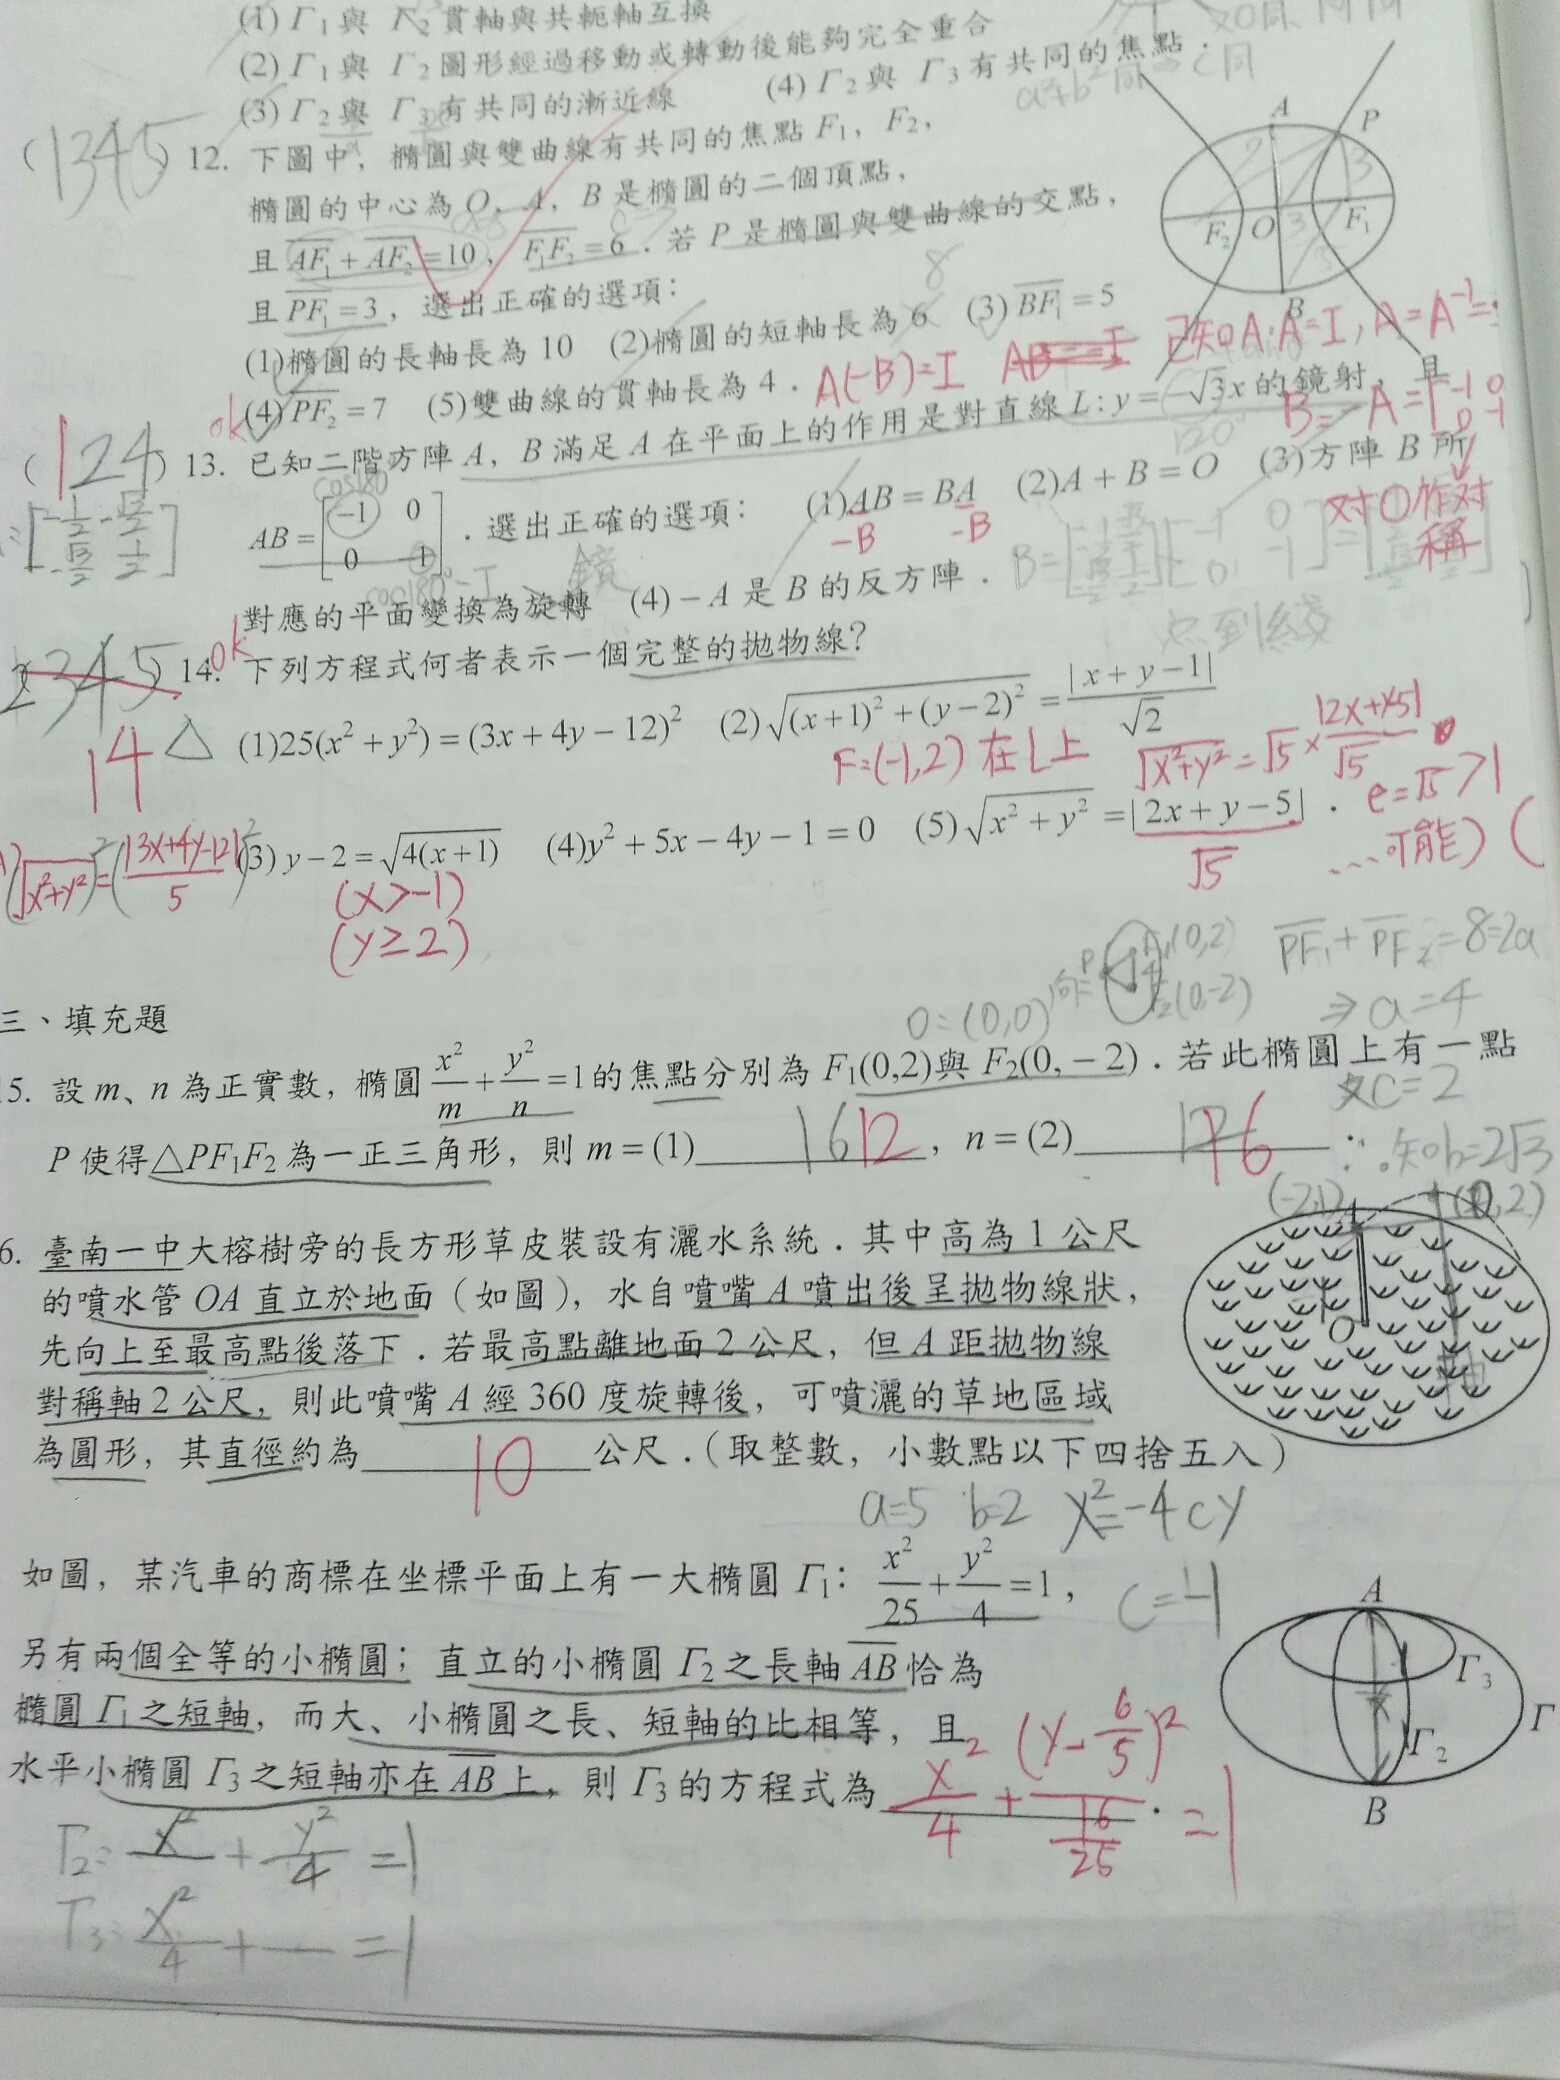 (1) Γ₁與 Γ₂貫軸與共軛軸互換
(2) Γ₁與 Γ₂圖形經過移動或轉動後能夠完全重合
(3) Γ₂與 Γ₃有共同的漸近線 (4) Γ₂與 Γ₃有共同的焦點.
a²+b²同 ⇒ c同
(1345) 12. 下圖中，橢圓與雙曲線有共同的焦點 F₁，F₂，
橢圓的中心為 O，A，B 是橢圓的二個頂點，
且 AF₁ + AF₂ = 10，F₁F₂ = 6．若 P 是橢圓與雙曲線的交點，
且 PF₁ = 3，選出正確的選項：
8
(1)橢圓的長軸長為 10 (2)橢圓的短軸長為 6 (3) BF₁ = 5
(4) PF₂ = 7 (5)雙曲線的貫軸長為 4．
A P F₂ O F₁ B
2 3 3
A(-B)=I AB=-I 已知A·A=I, A=A⁻¹=
ok
(124) 13. 已知二階方陣 A，B 滿足 A 在平面上的作用是對直線 L：y = −√3x 的鏡射，且
120°
AB = [−1 0
0 −1]．選出正確的選項： (1)AB = BA (2)A + B = O (3)方陣 B 所
-B -B
cos180° 鏡
对O作対稱
對應的平面變換為旋轉 (4) − A 是 B 的反方陣．
点到綫
ok
2345 14. 下列方程式何者表示一個完整的拋物線？
14 △ (1)25(x² + y²) = (3x + 4y − 12)² (2)√((x+1)² + (y−2)²) = |x + y − 1| / √2
F=(-1,2) 在L上 √x²+y² = √5 × |2x+y-5| / √5
e=√5>1
(3) y − 2 = √(4(x+1)) (4)y² + 5x − 4y − 1 = 0 (5)√(x² + y²) = |2x + y − 5|．
√5
...可能)
(√x²+y²)² = (|3x+4y-12| / 5)²
(x>-1)
(y≥2)
O=(0,0) (0,2) (0,-2) PF₁+PF₂=8=2a
⇒ a=4
三、填充題
15. 設 m、n 為正實數，橢圓 x²/m + y²/n = 1 的焦點分別為 F₁(0,2)與 F₂(0, − 2)．若此橢圓上有一點
又C=2
P 使得△PF₁F₂ 為一正三角形，則 m = (1) 12，n = (2) 16
∴知b=2√3
16. 臺南一中大榕樹旁的長方形草皮裝設有灑水系統．其中高為 1 公尺
的噴水管 OA 直立於地面（如圖），水自噴嘴 A 噴出後呈拋物線狀，
先向上至最高點後落下．若最高點離地面 2 公尺，但 A 距拋物線
對稱軸 2 公尺，則此噴嘴 A 經 360 度旋轉後，可噴灑的草地區域
為圓形，其直徑約為 10 公尺．（取整數，小數點以下四捨五入）
(-2,1) A (0,2) O 軸
a=5 b=2 x²=-4cy
c=-1
如圖，某汽車的商標在坐標平面上有一大橢圓 Γ₁： x²/25 + y²/4 = 1，
另有兩個全等的小橢圓；直立的小橢圓 Γ₂ 之長軸 AB 恰為
橢圓 Γ₁ 之短軸，而大、小橢圓之長、短軸的比相等，且
水平小橢圓 Γ₃ 之短軸亦在 AB 上，則 Γ₃ 的方程式為 x²/4 + (y-6/5)²/(16/25) = 1．
A Γ₃ Γ Γ₂ B
Γ₂: x²/ + y²/4 = 1
Γ₃: x²/4 + = 1